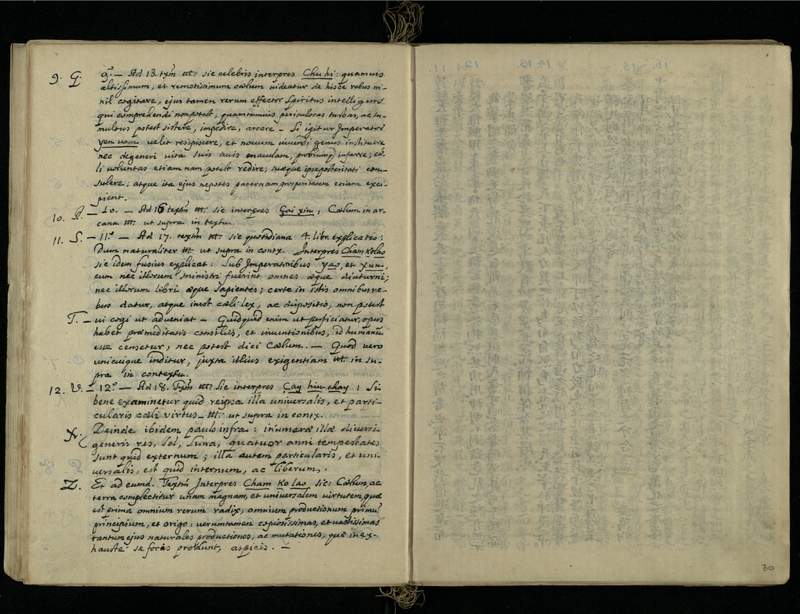 9. Q. 9.ª — Ad 13. txtm etc: sic celebris interpres Chu hi: quamvis
altissimum, et remotissimum cælum videatur de hisce rebus ni-
hil cogitare, ejus tamen rerum effector Spiritus intelligens
qui comprehendi non potest, quantumvis periculosas turbas, ac tu-
multus potest sistere, impedire, arcere — Si igitur Imperator
yeu vam velit resipiscere, et novum vivendi genus instituere
nec degeneri vita suis avis maculam, probrumq inferre; cæ-
li voluntas etiamnum potest redire, suæque ipse posteritati con-
sulere; atque ita ejus nepotes paternam prosperitatem etiam exci-
pient.
10. R. — 10. — Ad 16 textum etc. sic interpres Çai xin; Cælum in ar-
cana etc. ut supra in textu.
11. S. — 11.º — Ad 17. textm etc sic quotidiana 4. libr. explicatio:
Dum naturaliter etc ut supra in contx. Interpres Cham Kolao
sic idem fusius explicat: Sub Imperatoribus Yao, et Xun,
cum nec illorum ministri fuerint omnes æque diuturni;
nec illorum liberi æque sapientes; certe in istis omnibus re-
bus datur, atque inest cæli lex, ac dispositio, non potest
T. — vi cogi ut adveniat — Quidquid enim ut perficiatur, opus
habet præmeditatis consiliis, et inventionibus, id humanū
esse censetur, nec potest dici Cælum. — Quod vero
unicuique inditur, juxta illius exigentiam etc in su-
pra in contextu.
12. V. — 12.º — Ad 18. Txtm etc: Sic interpres Çay hiu chay: Si
bene examinetur quid reipsa illa universalis, et parti-
cularis cæli virtus — etc: ut supra in contx.
X. Deinde ibidem paulo infra: innumeræ illæ diversi
generis res, Sol, Luna, quatuor anni tempestates
sunt quid externum; illa autem particularis, et uni-
versalis, est quid internum, ac liberum.
Z. Et ad eumd. Textm Interpres Cham Ko lao sic: Cælum, ac
terra complectitur unam magnam, et universalem virtutem, quæ
est prima omnium rerum radix, omnium productionum primū
principium, et origo: verumtamen copiosissimas, et vastissimas
tantum ejus naturales productiones, ac mutationes, quæ inex-
hauste se foras produnt, aspicis. —
30